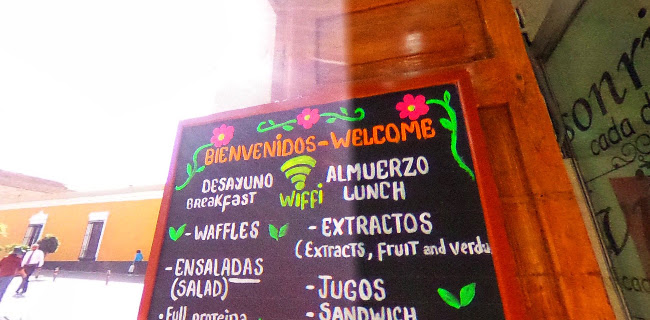 BIENVENIDOS-WELCOME
DESAYUNO
BREAKFAST
WIFFI
ALMUERZO
LUNCH
- WAFFLES -
- ENSALADAS
(SALAD)
• Full proteina
- EXTRACTOS
(EXTRACTS, FRUIT and verdu
- JUGOS
- SANDWICH
sonri
cada d